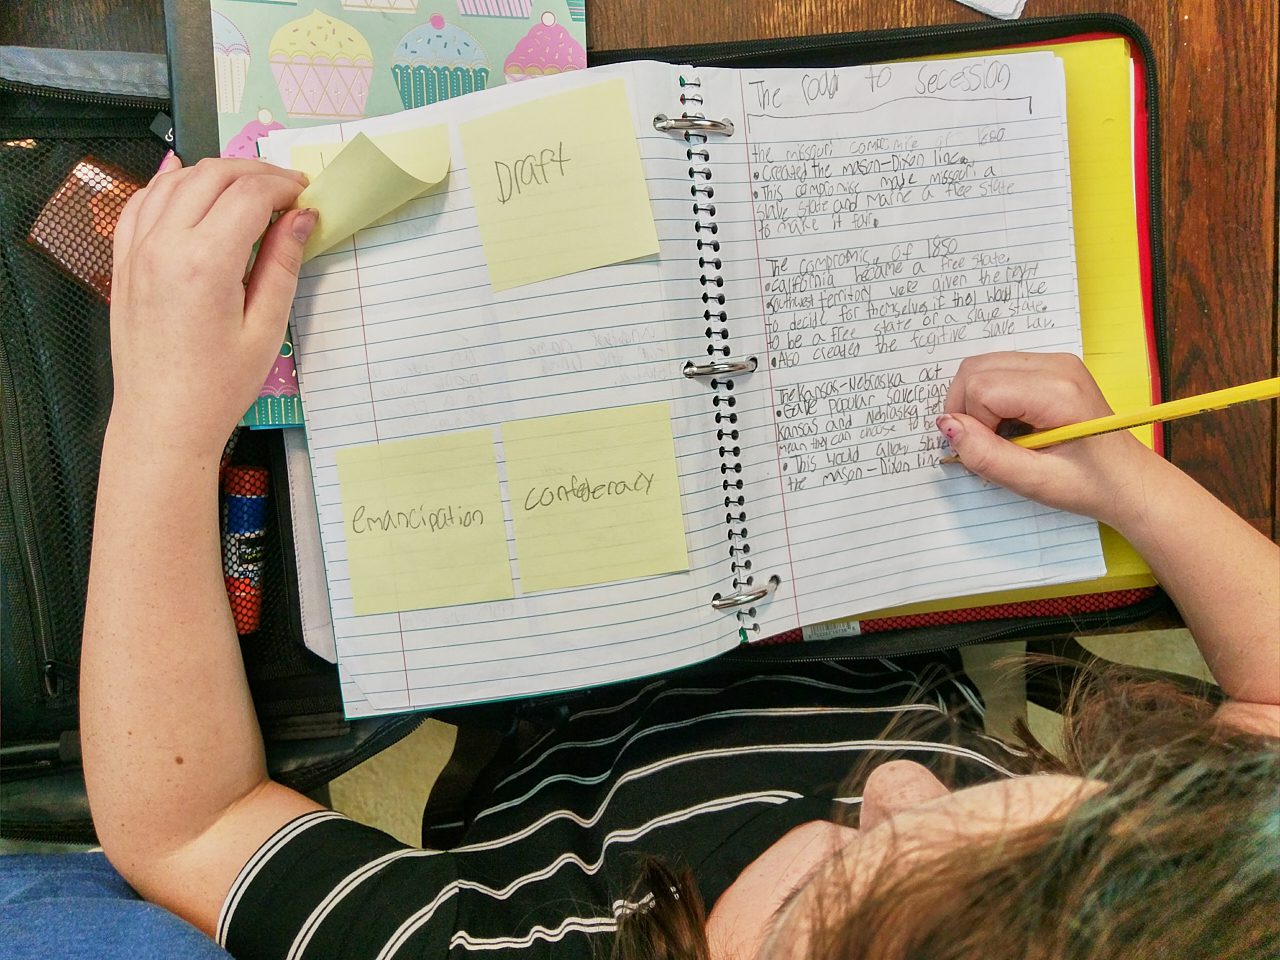 Draft
emancipation
confederacy
The road to Secession
the missouri compromise of
• Created the mason-Dixon line.
• This compromise made missouri a
slave state and maine a free state
to make it fair.
The compromic, of 1850
• California became a free state.
• Southwest territory were given the right
to decide for themselves if they would like
to be a free state or a slave state.
• Also created the fugitive slave law.
The Kansas-Nebraska act
• Gave popular
Kansas and Nebraska
mean they can choose to be
• This would allow
the mason-Dixon line